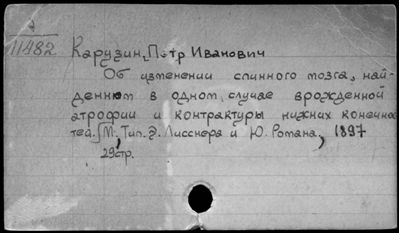 11482
Карузин, Петр Иванович
Об изменении спинного мозга, най-
денном в одном случае врожденной
атрофии и контрактуры нижних конечнос
тей. [М., Тип. Э. Лисснера и Ю. Романа, 1897
29стр.